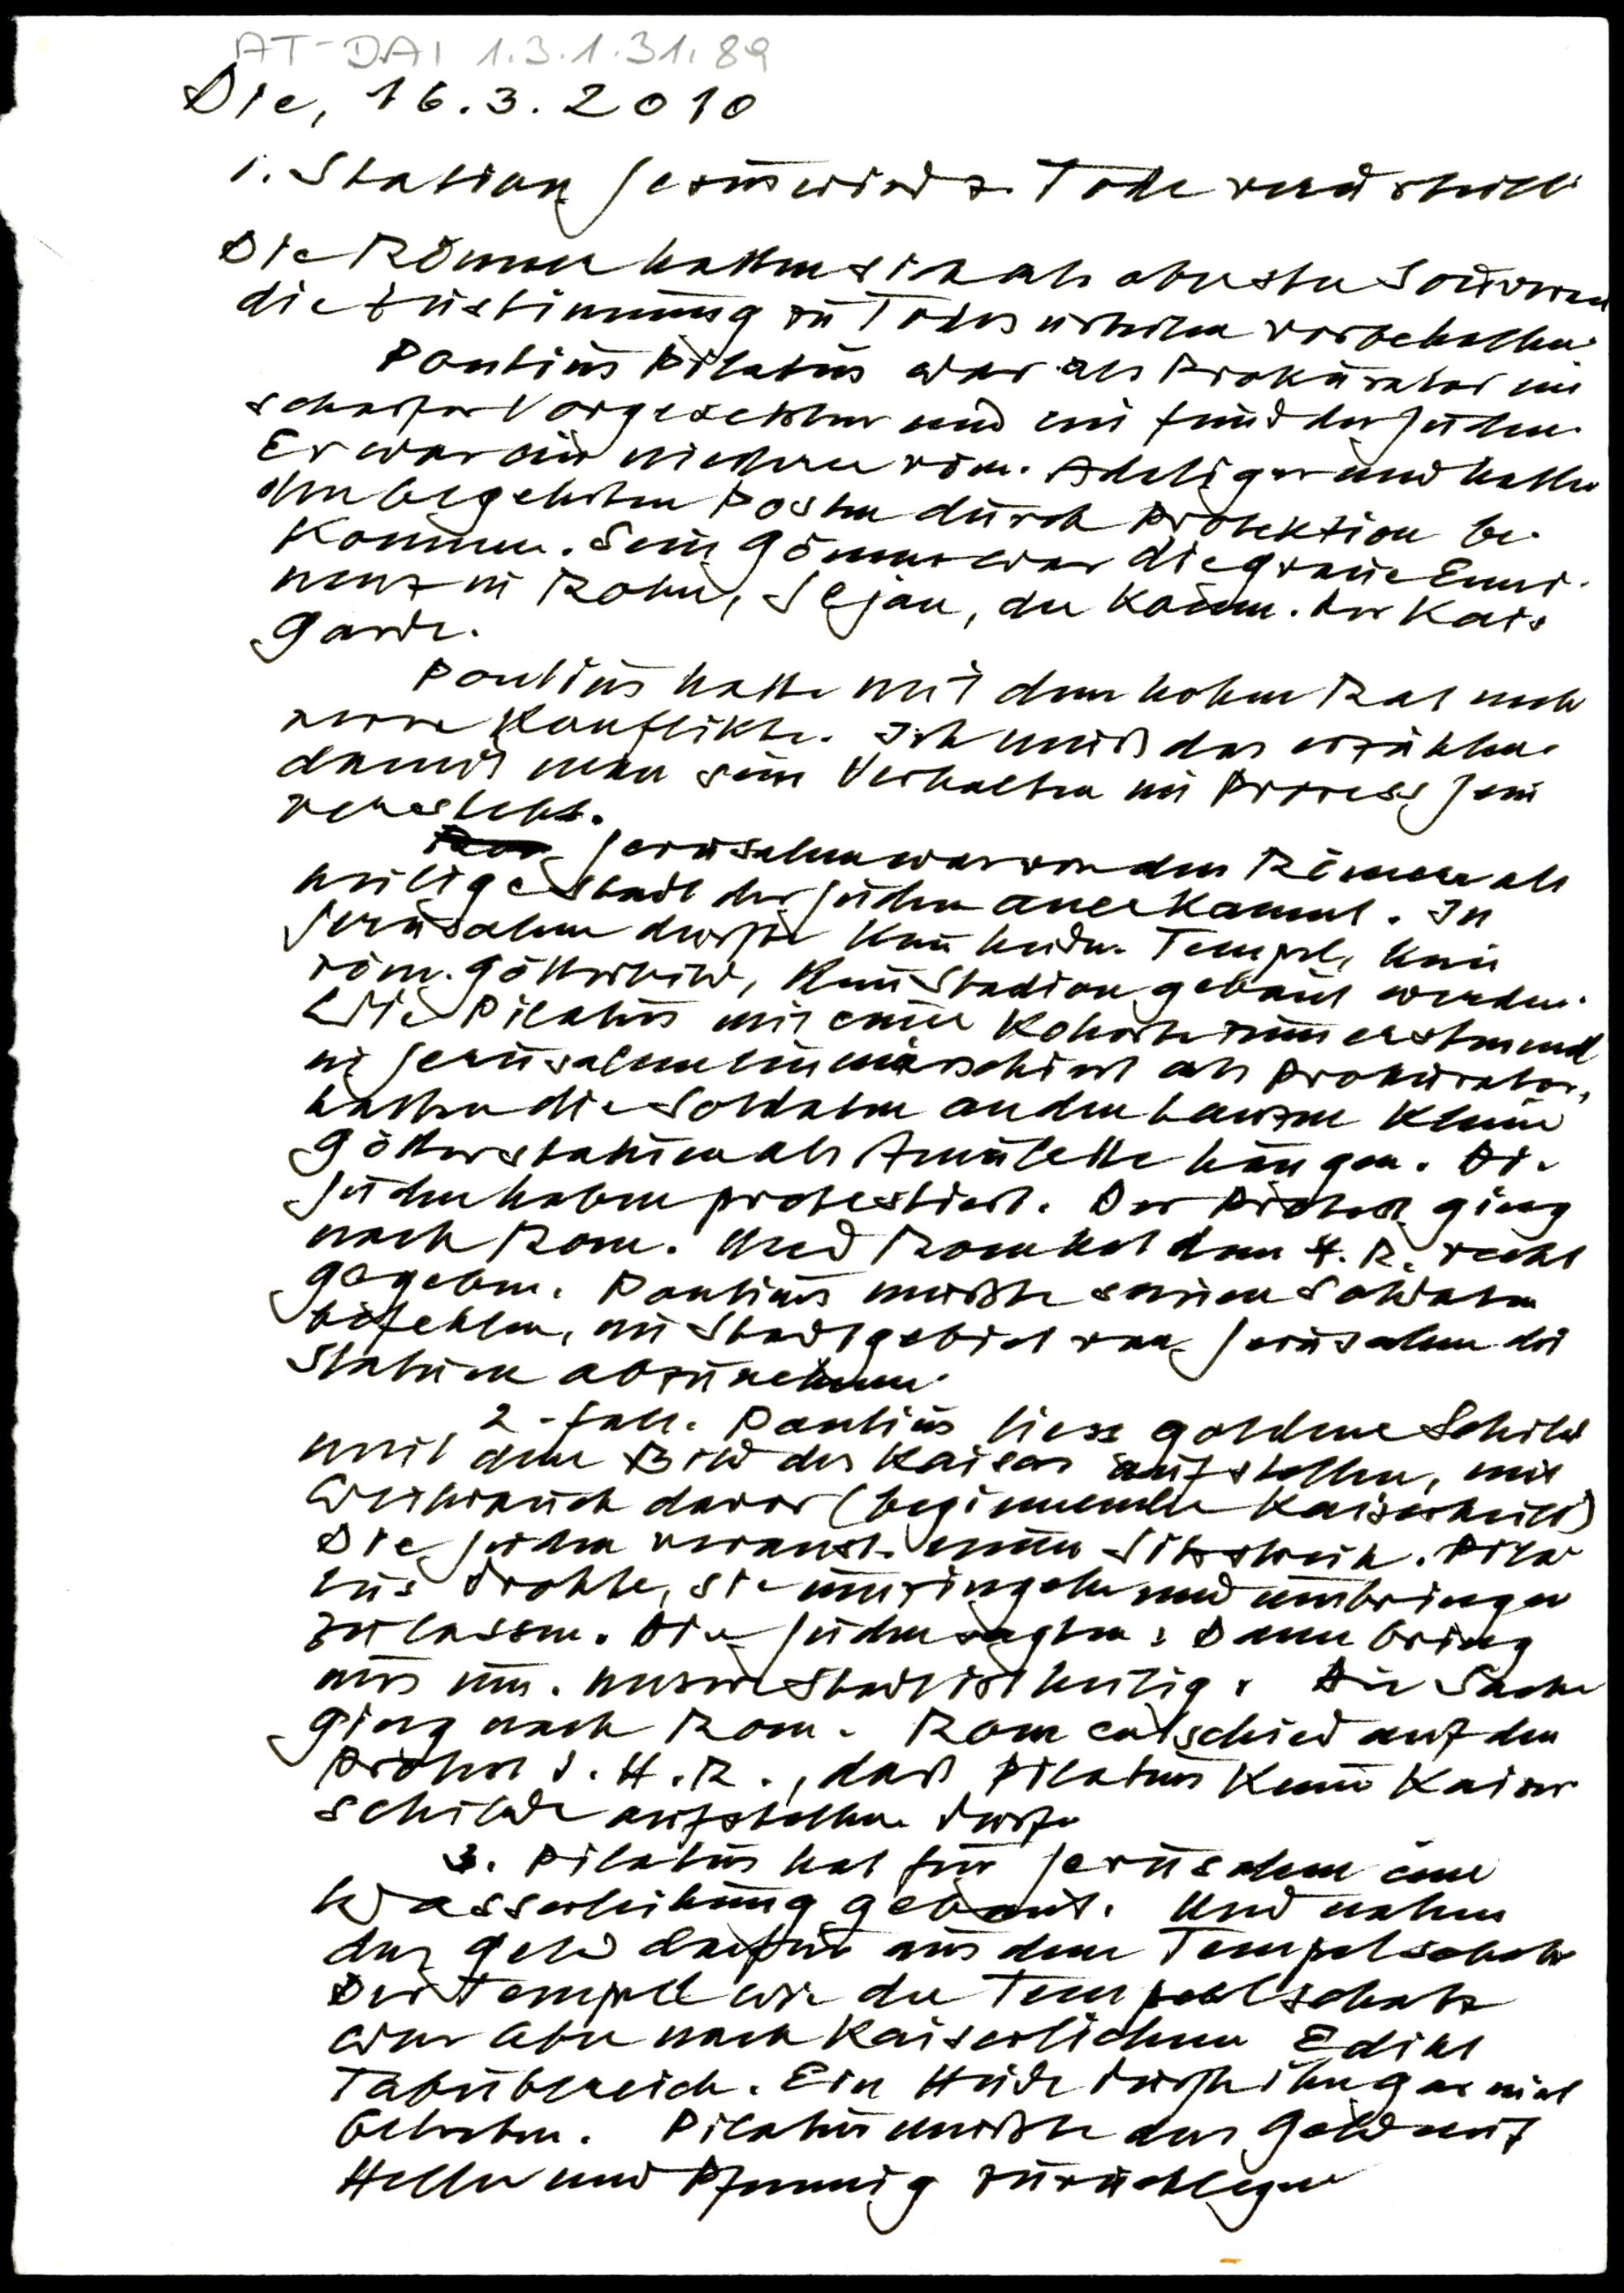 AT-DAI 1.3.1.31.89
Die, 16.3.2010
1. Station Jesus wird z. Tode verurteilt
Die Römer hatten sich als oberste Souverene
die Zustimmung zu Todesurteilen vorbehalten.
Pontius Pilatus war als Prokurator ein
scharfer Vorgesetzter und ein Feind der Juden.
Er war ein niederer röm. Adeliger und hatte
den begehrten Posten durch Protektion be-
kommen. Sein Gönner war die graue Emi-
nenz in Rom, Sejan, der Komm. der Kais
Garde.
Pontius hatte mit dem hohen Rat mehr
rere Konflikte. Ich muß das erzählen
damit man sein Verhalten im Prozess Jesu
versteht.
Jerusalem war von den Römern als
heilige Stadt der Juden anerkannt. In
Jerusalem durfte kein heidn. Tempel, kein
röm. Götterbild, kein Stadion gebaut werden.
Wie Pilatus mit einer Kohorte zum erstenmal
in Jerusalem einmarschiert als Prokurator,
hatten die Soldaten an den Lanzen kleine
Götterstatuen als Amulette hängen. Die
Juden haben protestiert. Der Protest ging
nach Rom. Und Rom hat dem H. R. recht
gegeben. Pontius mußte seinen Soldaten
befehlen, im Stadtgebiet von Jerusalem die
Statuen abzunehmen.
2. Fall. Pontius liess goldene Schilde
mit dem Bild des Kaisers aufstellen, mit
Weihrauch davor (beginnender Kaiserkult)
Die Juden veranst. einen Sitzstreik. Pila
tus drohte, sie umzingeln und umbringen
zu lassen. Die Juden sagten: Dann bring
uns um. Unsere Stadt ist heilig. Die Sache
ging nach Rom. Rom entschied auf den
Protest d. H. R., daß Pilatus keine Kaiser
schilde aufstellen durfte
3. Pilatus hat für Jerusalem eine
Wasserleitung gebaut. Und nahm
das Geld dafür aus dem Tempelschatz
Der Tempel wie der Tempelschatz
war aber nach kaiserlichem Edikt
Tabubereich. Ein Heide durfte ihn gar nicht
betreten. Pilatus mußte das Geld auf
Heller und Pfennig zurücklegen